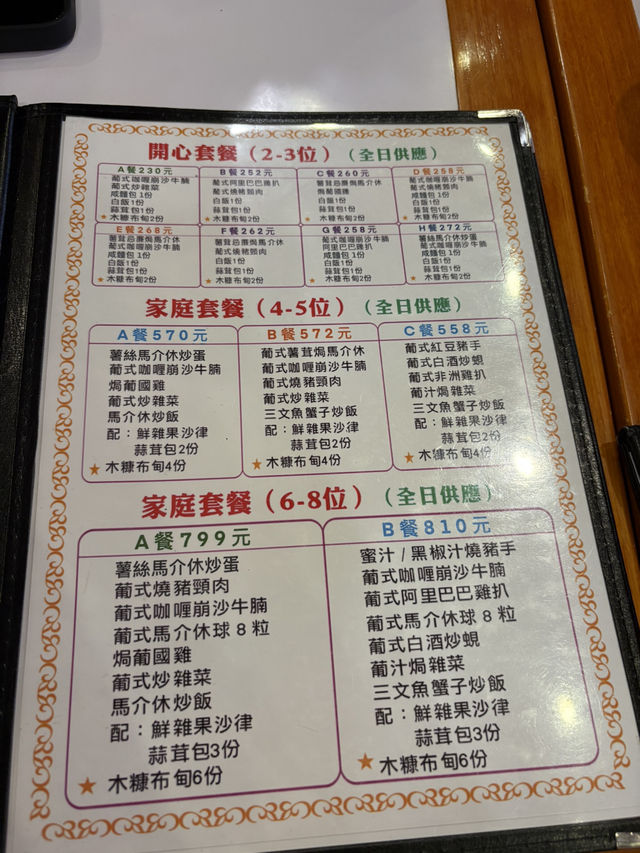 開心套餐（2-3位）（全日供應）
A 餐 230 元
葡式咖喱崩沙牛腩
葡式炒雜菜
咸麵包 1份
白飯1份
蒜茸包1份
★ 木糠布甸2份
B 餐 252 元
葡式阿里巴巴雞扒
葡式燒豬頸肉
白飯1份
蒜茸包1份
★ 木糠布甸2份
C 餐 260 元
薯茸忌廉焗馬介休
焗葡國雞
白飯1份
蒜茸包1份
★ 木糠布甸2份
D 餐 258 元
葡式咖喱崩沙牛腩
葡式燒豬頸肉
白飯1份
蒜茸包1份
★ 木糠布甸2份
E 餐 268 元
薯茸忌廉焗馬介休
葡式咖喱崩沙牛腩
咸麵包 1份
白飯1份
蒜茸包1份
★ 木糠布甸2份
F 餐 262 元
薯茸忌廉焗馬介休
葡式燒豬頸肉
白飯1份
蒜茸包1份
★ 木糠布甸2份
G 餐 258 元
葡式咖喱崩沙牛腩
阿里巴巴雞扒
咸麵包 1份
白飯1份
蒜茸包1份
★ 木糠布甸2份
H 餐 272 元
薯絲馬介休炒蛋
葡式咖喱崩沙牛腩
咸麵包 1份
白飯1份
蒜茸包1份
★ 木糠布甸2份
家庭套餐（4-5位）（全日供應）
A 餐 570 元
薯絲馬介休炒蛋
葡式咖喱崩沙牛腩
焗葡國雞
葡式炒雜菜
馬介休炒飯
配：鮮雜果沙律
蒜茸包2份
★ 木糠布甸4份
B 餐 572 元
葡式薯茸焗馬介休
葡式咖喱崩沙牛腩
葡式燒豬頸肉
葡式炒雜菜
三文魚蟹子炒飯
配：鮮雜果沙律
蒜茸包2份
★ 木糠布甸4份
C 餐 558 元
葡式紅豆豬手
葡式白酒炒蜆
葡式非洲雞扒
葡汁焗雜菜
三文魚蟹子炒飯
配：鮮雜果沙律
蒜茸包2份
★ 木糠布甸4份
家庭套餐（6-8位）（全日供應）
A 餐 799 元
薯絲馬介休炒蛋
葡式燒豬頸肉
葡式咖喱崩沙牛腩
葡式馬介休球 8 粒
焗葡國雞
葡式炒雜菜
馬介休炒飯
配：鮮雜果沙律
蒜茸包3份
★ 木糠布甸6份
B 餐 810 元
蜜汁 / 黑椒汁燒豬手
葡式咖喱崩沙牛腩
葡式阿里巴巴雞扒
葡式馬介休球 8 粒
葡式白酒炒蜆
葡汁焗雜菜
三文魚蟹子炒飯
配：鮮雜果沙律
蒜茸包3份
★ 木糠布甸6份